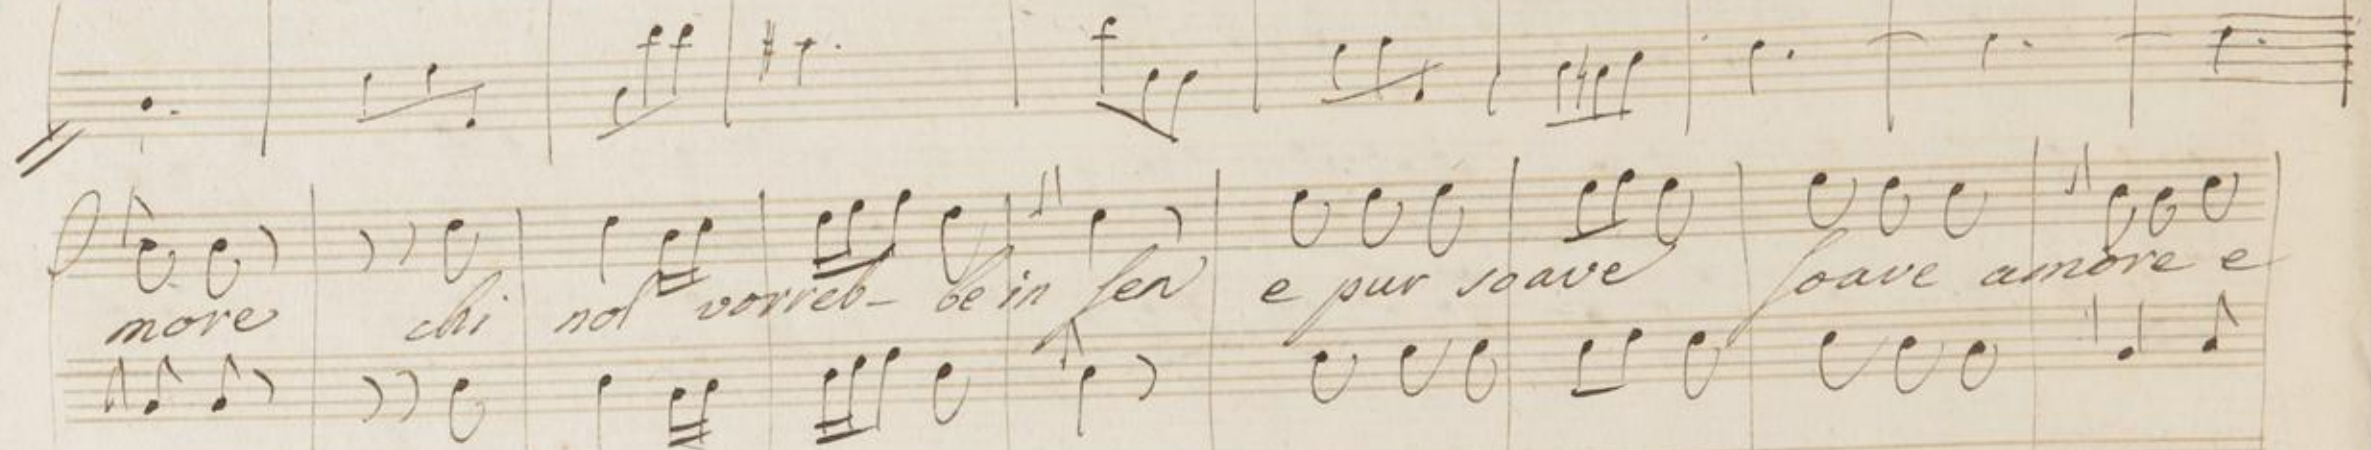 more chi nol vorreb- be in sen e pur soave soave amore e